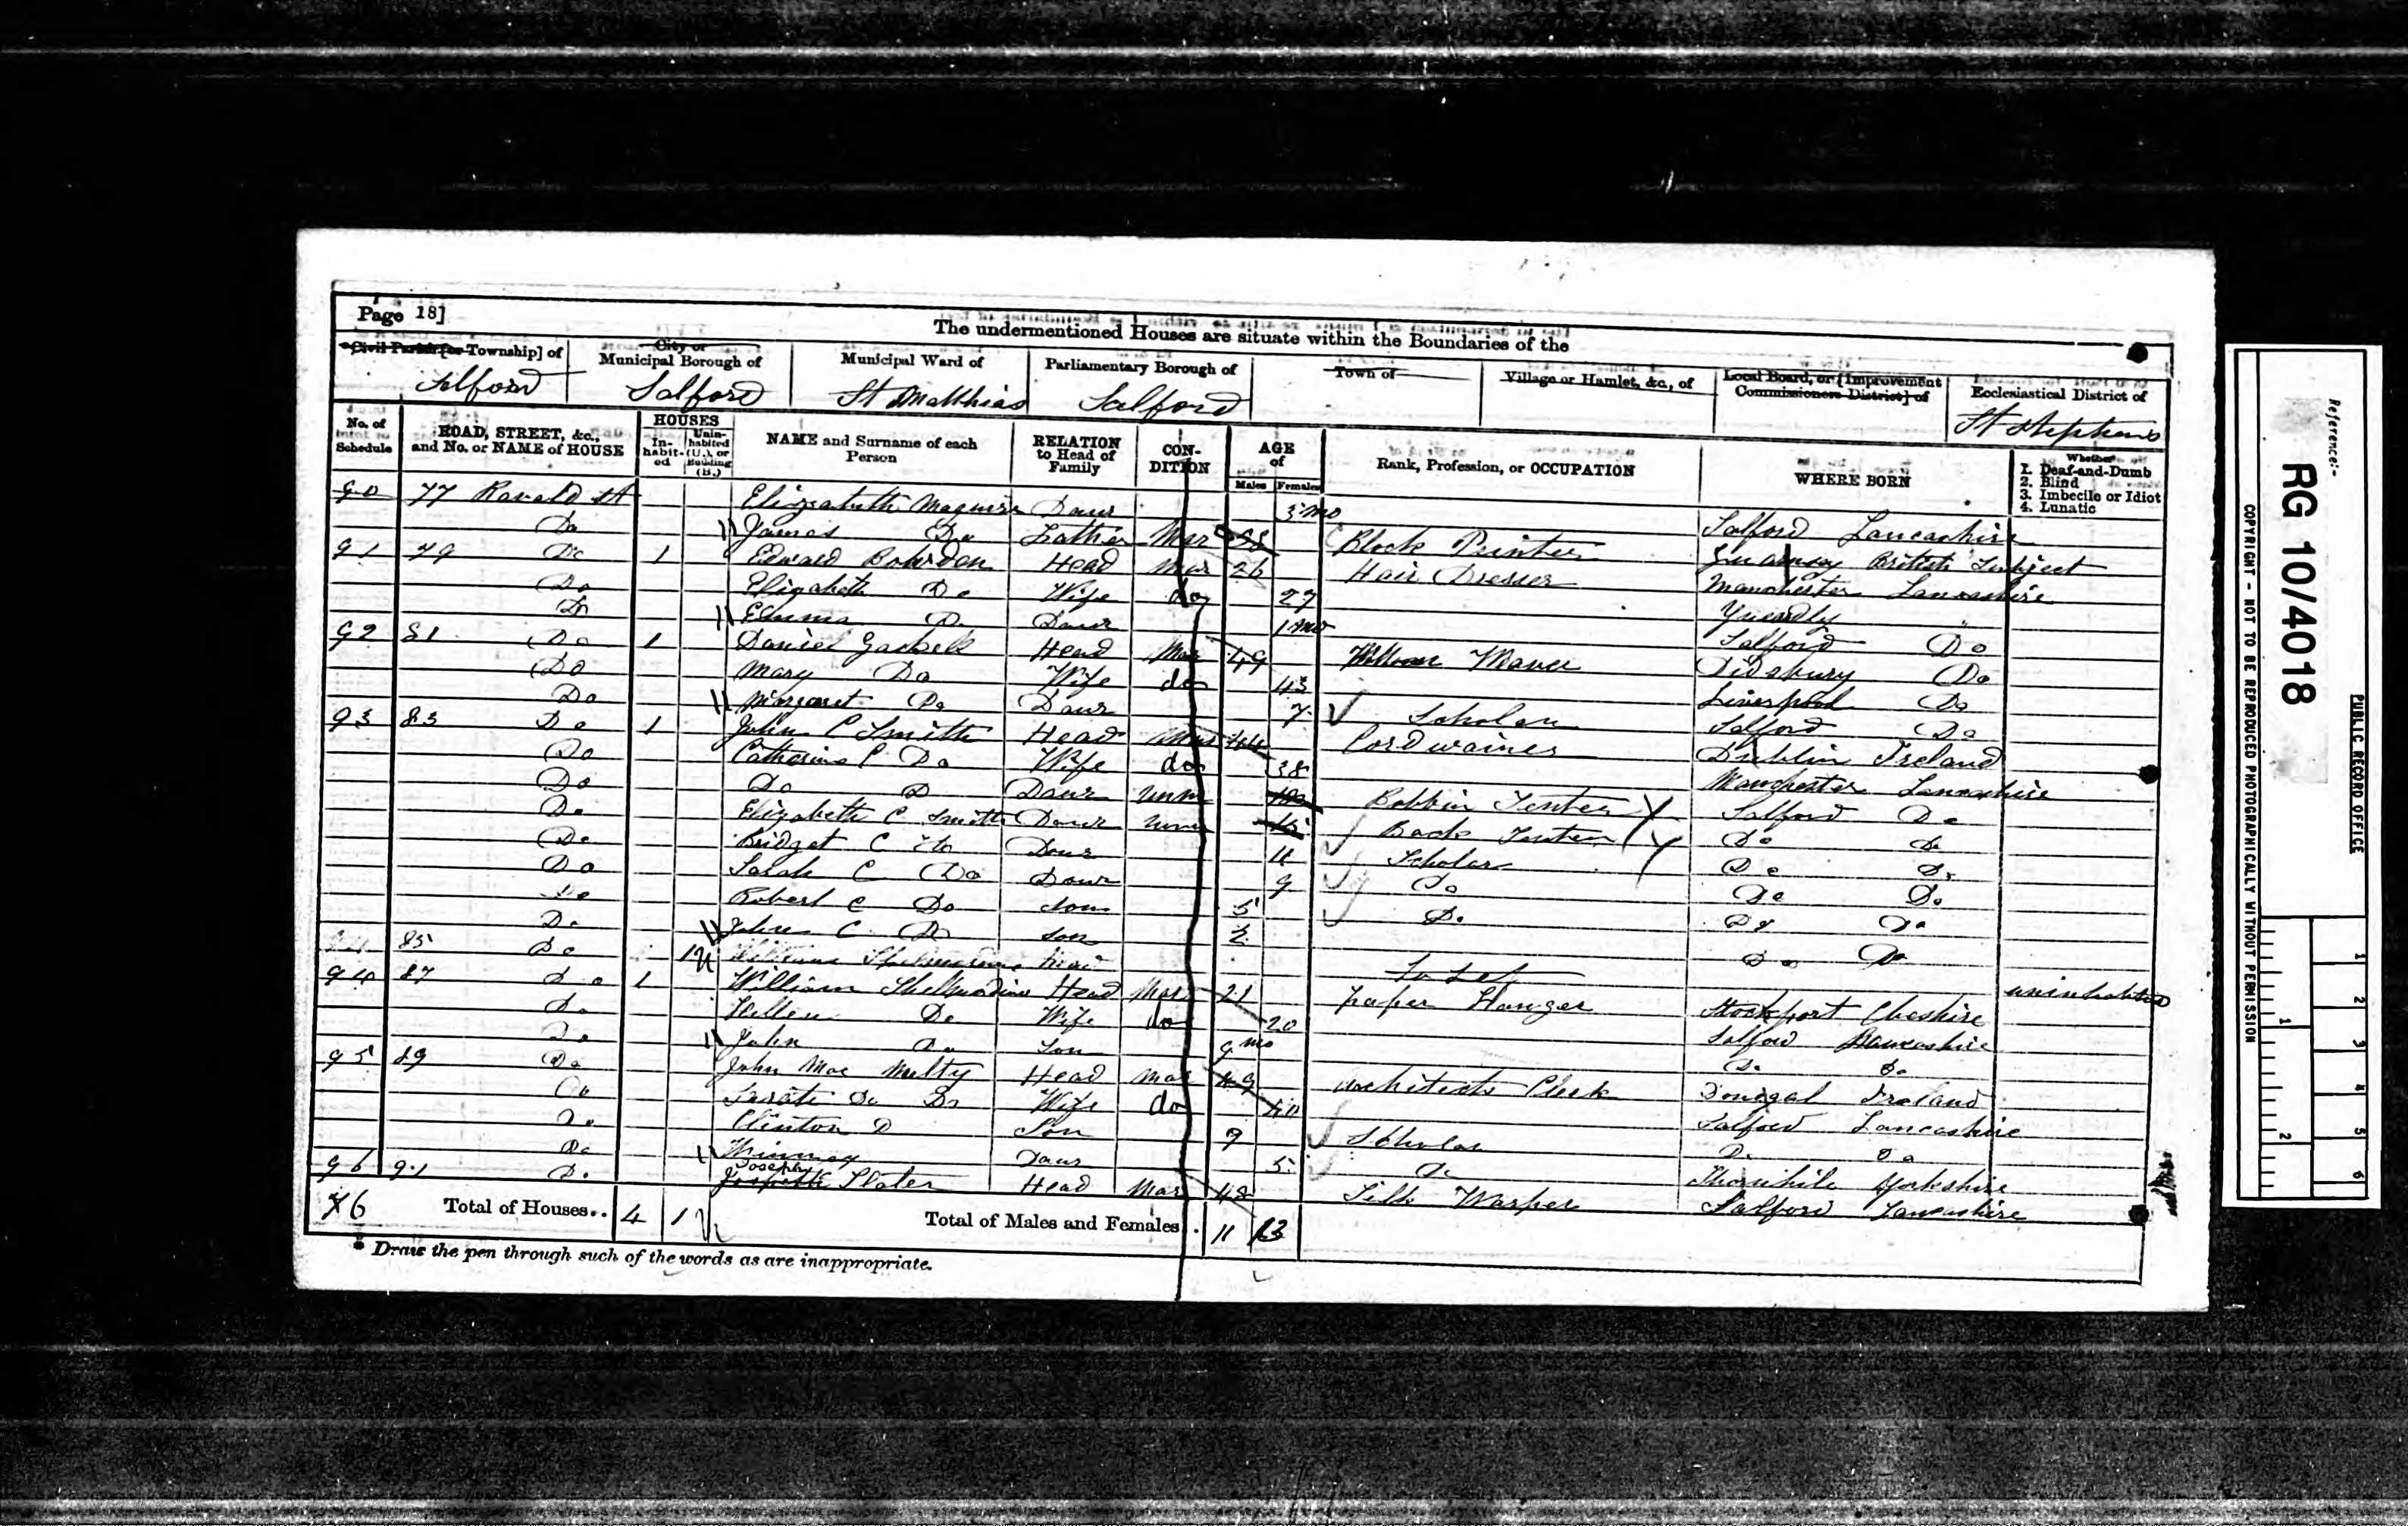 Page 18]
The undermentioned Houses are situate within the Boundaries of the
Civil Parish [or Township] of
City or Municipal Borough of
Municipal Ward of
Parliamentary Borough of
Town of
Village or Hamlet, &c., of
Local Board, or [Improvement Commissioners District] of
Ecclesiastical District of
Salford Salford St Matthias Salford St Stephens
No. of Schedule
ROAD, STREET, &c., and No. or NAME of HOUSE
HOUSES
In-habit-ed
Unin-habited (U.), or Building (B.)
NAME and Surname of each Person
RELATION to Head of Family
CON-DITION
AGE of
Males Females
Rank, Profession, or OCCUPATION
WHERE BORN
Whether
1. Deaf-and-Dumb
2. Blind
3. Imbecile or Idiot
4. Lunatic
90 77 Elizabeth Maguire Daur 3 mo Salford Lancashire
Do James Do Mar Block Printer Guernsey British Subject
91 79 Do 1 Edward Bowden Head Mar 26 Hair Dresser Manchester Lancashire
Do Elizabeth Do Wife do 27
Do Emma Do Daur 1 mo Salford Do
92 81 Do 1 Daniel Gaskell Head Mar 49 Didsbury Do
Do Mary Do Wife do 43 Liverpool Do
Do Margaret Do Daur 7 Scholar Salford Do
93 83 Do 1 John C Smith Head Mar 44 Cordwainer Dublin Ireland
Do Catherine C Do Wife do 38 Manchester Lancashire
Do Do D Daur Unm Bobbin Tenter Salford Do
Do Elizabeth C Smith Daur Unm 15 Back Tenter Do Do
Do Bridget C Do Daur 11 Scholar Do Do
Do Sarah C Do Daur 9 Do Do Do
Do Robert C Do Son 5 Do Do Do
Do John C Do Son 2 Do Do
85 Do 1 To Let uninhabited
94 87 Do 1 William Head Mar 21 Paper Hanger Stockport Cheshire
Do Hellen Do Wife do 20 Salford Lancashire
Do John Do Son 9 mo Do Do
95 89 Do John Mac Head Mar 49 Architects Clerk Donegal Ireland
Do Do Do Wife do 40 Salford Lancashire
Do Clinton D Son 7 Scholar Do Do
Do Daur 5 Do Thornhill Yorkshire
96 91 Do Joseph Slater Head Mar 48 Silk Warper Salford Lancashire
6 Total of Houses.. 4 1 Total of Males and Females. 11 13
* Draw the pen through such of the words as are inappropriate.
Reference:-
RG 10/4018
PUBLIC RECORD OFFICE
COPYRIGHT - NOT TO BE REPRODUCED PHOTOGRAPHICALLY WITHOUT PERMISSION
1 2 3 4 5 6
1 2